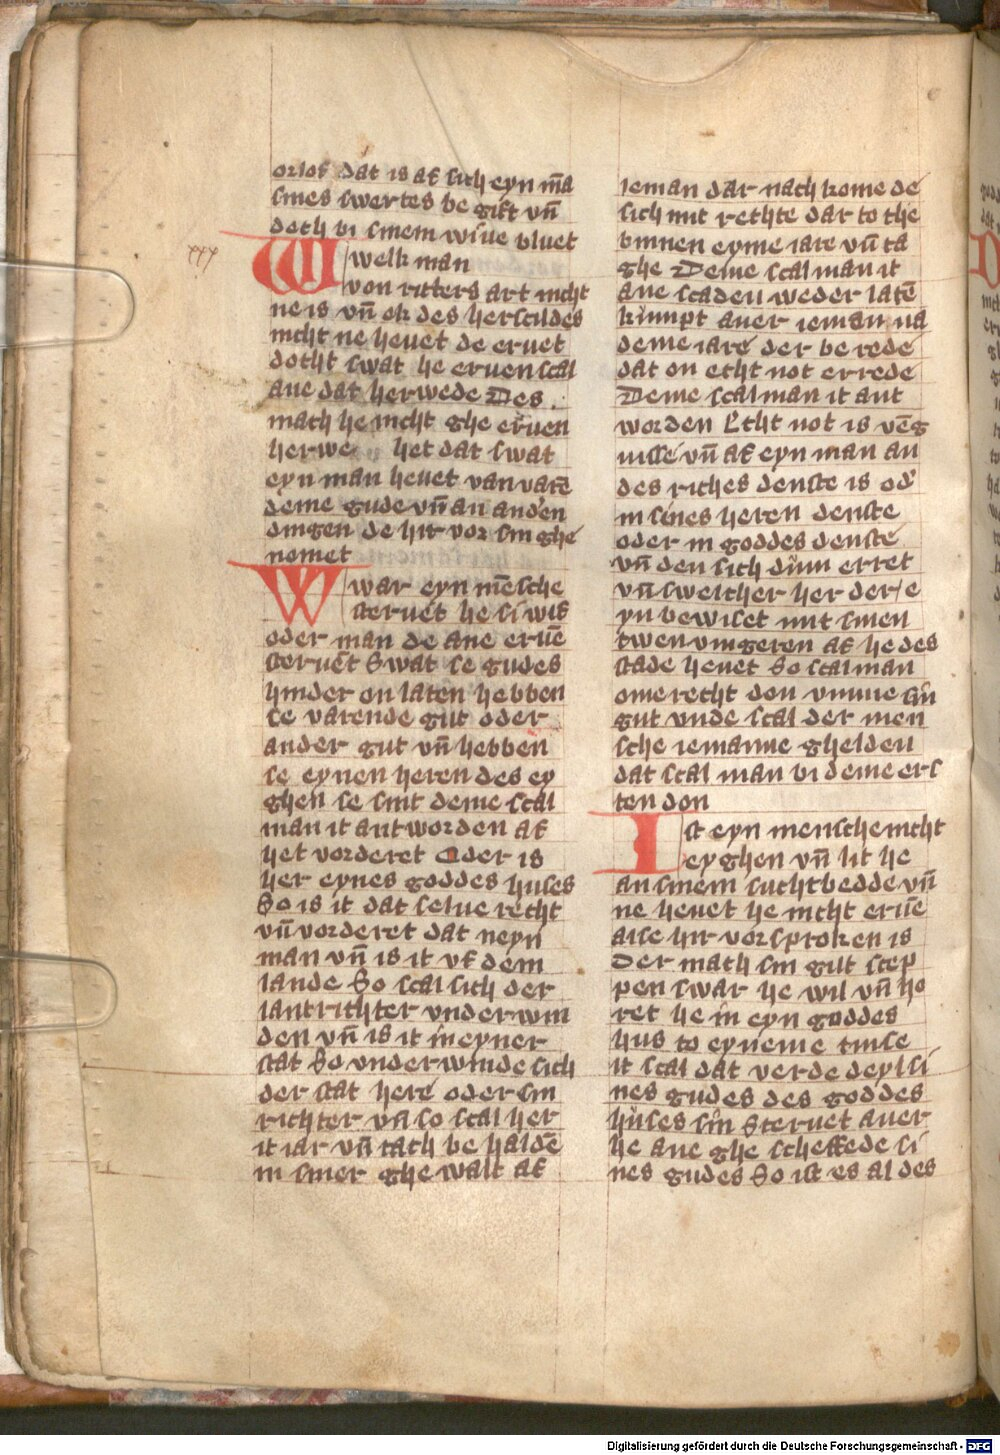 orlof dat is af sich eyn mā
sines swertes be gift vn̄
doch bi sinem wiue bluet
Welk man
von ritters art nicht
ne is vn̄ ok des herscildes
nicht ne heuet de eruet
docht swat he eruen scal
ane dat herwede Des
mach he nicht ghe eruen
herwe het dat swat
eyn man heuet van varē
deme gude vn̄ an andˈen
dingen de hir vor sin ghe
nomet
War eyn mēsche
steruet he si wif
oder man de ane eruē
steruet Swat se gudes
hinder on laten hebben
se varende gut oder
ander gut vn̄ hebben
se eynen heren des ey
ghen se sint deme scal
man it antworden af
het vorderet Oder is
her eynes goddes huses
So is it dat selue recht
vn̄ vorderet dat neyn
man vn̄ is it vf dem
lande So scal sich der
lantrichter vnderwin
den vn̄ is it in eyner
stat So vnderwinde sich
der stat here oder sin
richter vn̄ so scal her
it iar vn̄ tach be haldē
in siner ghewalt af
ieman dar nach kome de
sich mit rechte dar to the
binnen eyme iare vn̄ ta
ghe Deme scal man it
ane scaden weder latē
kumpt auer ieman na
deme iare der be rede
dat on echt not errede
Deme scal man it ant
worden Echt not is vēg
nisse vn̄ af eyn man an
des riches denste is odˈ
in sines heren denste
oder in goddes denste
vn̄ den sich dūm erret
vn̄ swelcher her der e
yn bewiset mit sinen
twen vingeren af he des
stade heuet So scal man
ome recht don vmme sin
gut vnde scal der men
sche iemanne ghelden
dat scal man bi deme ers
ten don
Ist eyn mensche nicht
eyghen vn̄ lit he
an sinem suchtbedde vn̄
ne heuet he nicht eruē
alse hir vorsproken is
Der mach sin gut scep
pen swar he wil vn̄ ho
ret he in eyn goddes
hus to eyneme tinse
it scal dat verde deyl si
nes gudes des goddes
huses sin Steruet auer
he ane ghe scheffede si
nes gudes So ist es al des
Digitalisierung gefördert durch die Deutsche Forschungsgemeinschaft - DFG